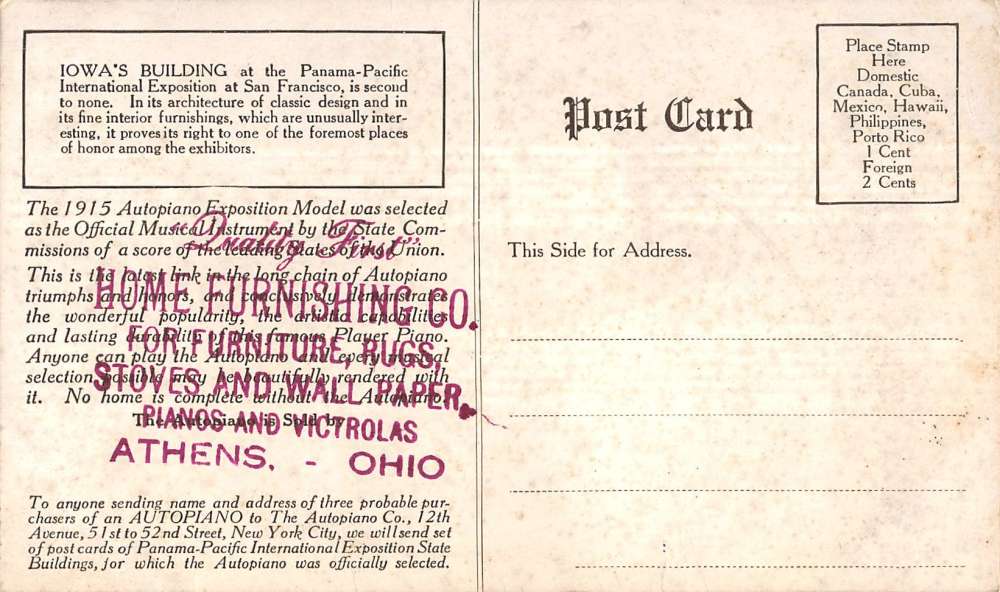 IOWA'S BUILDING at the Panama-Pacific
International Exposition at San Francisco, is second
to none. In its architecture of classic design and in
its fine interior furnishings, which are unusually inter-
esting, it proves its right to one of the foremost places
of honor among the exhibitors.
The 1915 Autopiano Exposition Model was selected
as the Official Musical Instrument by the State Com-
missions of a score of the leading States of the Union.
This is the latest link in the long chain of Autopiano
triumphs and honors, and conclusively demonstrates
the wonderful popularity, the artistic capabilities
and lasting durability of this famous Player Piano.
Anyone can play the Autopiano and every musical
selection possible may be beautifully rendered with
it. No home is complete without the Autopiano.
The Autopiano is Sold by
"Quality First"
HOME FURNISHING CO.
FOR FURNITURE, RUGS,
STOVES AND WALL PAPER,
PIANOS AND VICTROLAS
ATHENS, - OHIO
To anyone sending name and address of three probable pur-
chasers of an AUTOPIANO to The Autopiano Co., 12th
Avenue, 51st to 52nd Street, New York City, we will send set
of post cards of Panama-Pacific International Exposition State
Buildings, for which the Autopiano was officially selected.
Post Card
Place Stamp
Here
Domestic
Canada, Cuba,
Mexico, Hawaii,
Philippines,
Porto Rico
1 Cent
Foreign
2 Cents
This Side for Address.